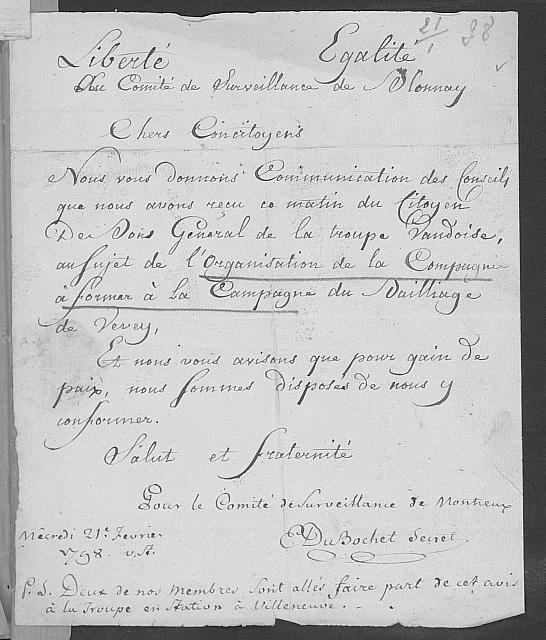 21/1 88
Liberté Egalité
Au Comité de Surveillance de Blonnay
Chers Concitoyens
Nous vous donnons Communication des Conseils
que nous avons reçu ce matin du Citoyen
De Bons Général de la troupe Vaudoise,
au sujet de l'Organisation de la Compagnie
à former à la Campagne du Bailliage
de Vevey,
Et nous vous avisons que pour gain de
paix, nous sommes disposés de nous y
conformer.
Salut et fraternité
Pour le Comité de Surveillance de Montreux
Mecredi 21e. Fevrier
1798. v. st.
DuBochet Secret
P. S. Deux de nos membres sont allés faire part de cet avis
à la Troupe en Station à Villeneuve. -